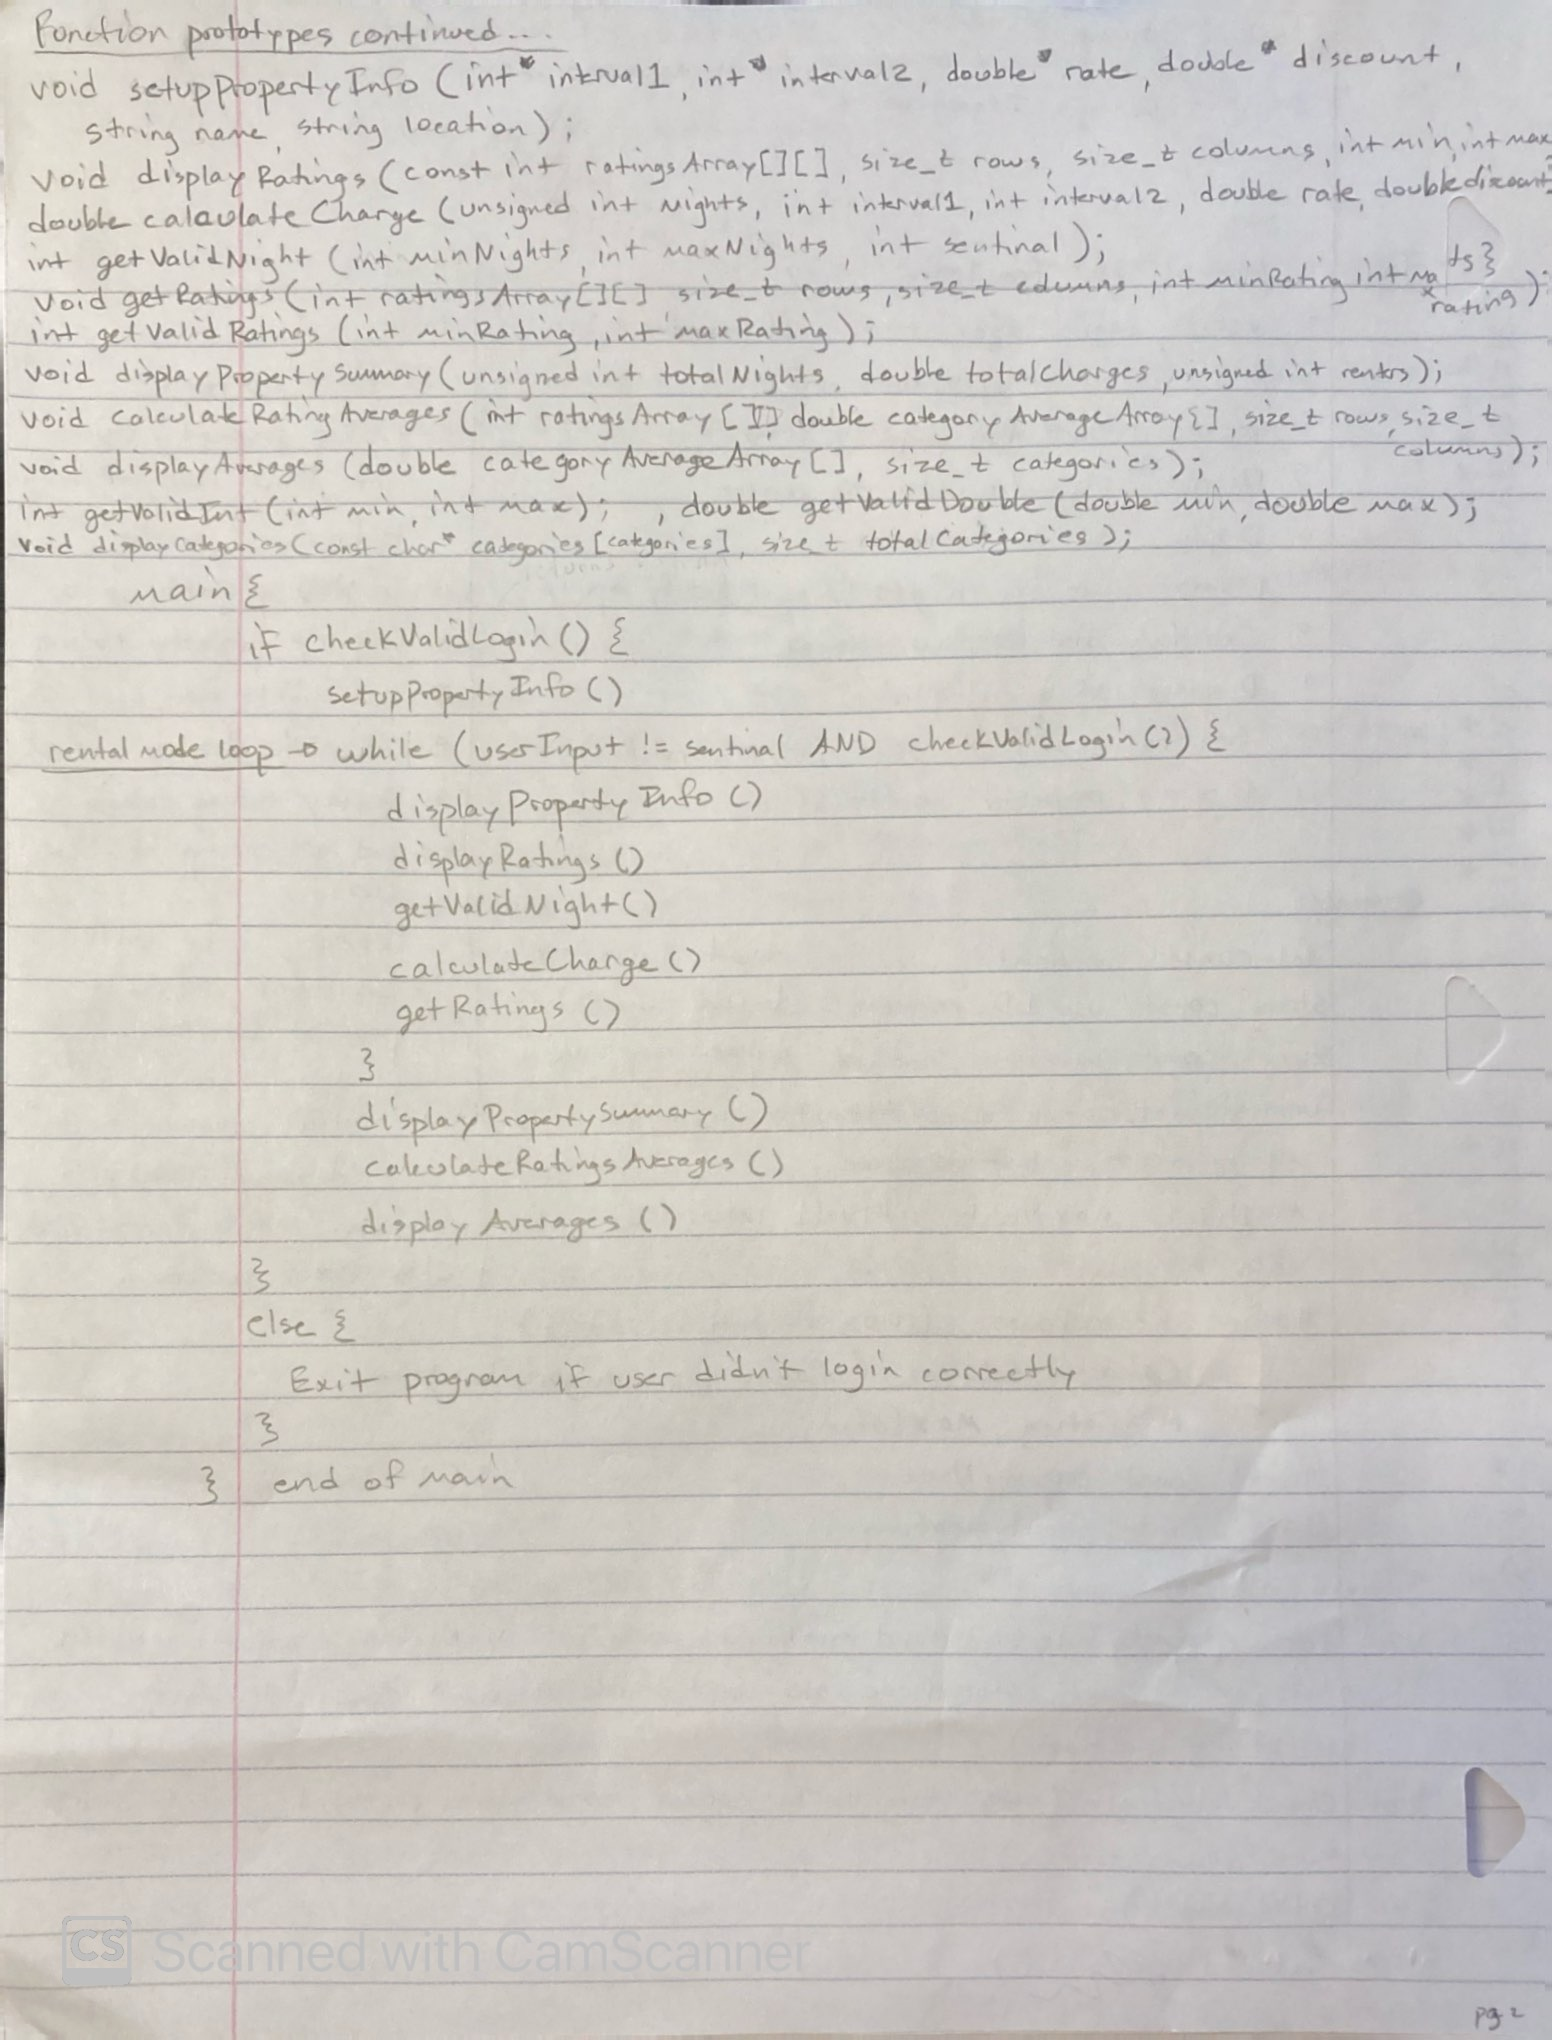 Function prototypes continued...
void setupPropertyInfo (int* interval1, int* interval2, double* rate, double* discount,
string name, string location);
void displayRatings (const int ratingsArray[][], size_t rows, size_t columns, int min, int max
double calculateCharge (unsigned int nights, int interval1, int interval2, double rate, double discount);
int getValidNight (int minNights, int maxNights, int sentinal);
ts}
void getRatings (int ratingsArray[][] size_t rows, size_t columns, int minRating int max
rating);
int getValidRatings (int minRating, int maxRating);
void displayPropertySummary (unsigned int totalNights, double totalCharges, unsigned int renters);
void calculateRatingAverages (int ratingsArray [][] double categoryAverageArray[], size_t rows, size_t
columns);
void displayAverages (double categoryAverageArray[], size_t categories);
int getValidInt (int min, int max); , double getValidDouble (double min, double max);
void displayCategories (const char* categories [categories], size_t totalCategories);
main {
if checkValidLogin () {
setupPropertyInfo ()
rental mode loop → while (userInput != sentinal AND checkValidLogin()) {
displayPropertyInfo ()
displayRatings ()
getValidNight ()
calculateCharge ()
getRatings ()
}
displayPropertySummary ()
calculateRatingsAverages ()
displayAverages ()
}
else {
Exit program if user didn't login correctly
}
} end of main
CS Scanned with CamScanner
pg 2